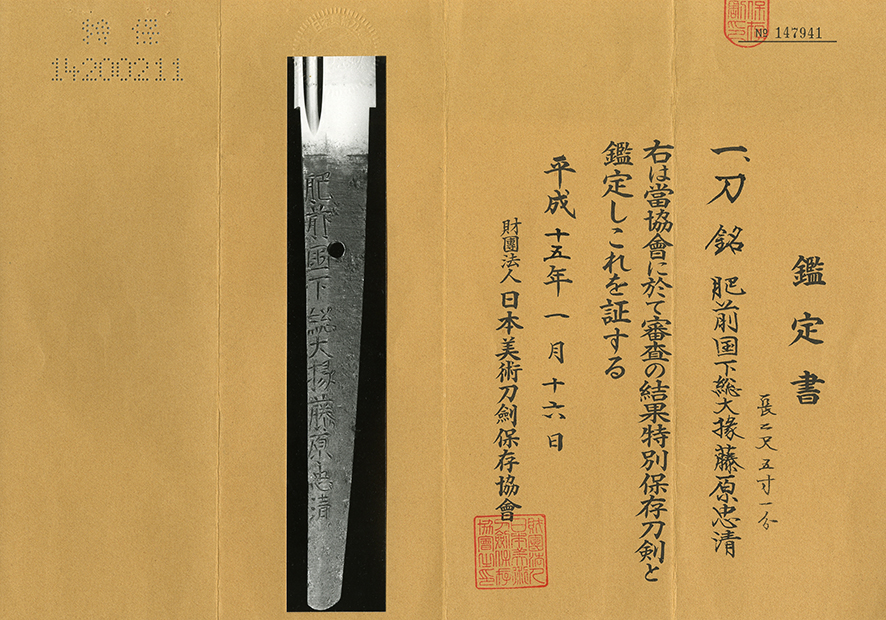 鑑定書
№ 147941
一、刀 銘 肥前国下総大掾藤原忠清
長二尺五寸一分
右は當協會に於て審査の結果特別保存刀剣と
鑑定しこれを証する
平成十五年一月十六日
財團法人 日本美術刀劍保存協會
財團法人日本美術刀劍保存協會之印
肥前国下総大掾藤原忠清
特保
14200211